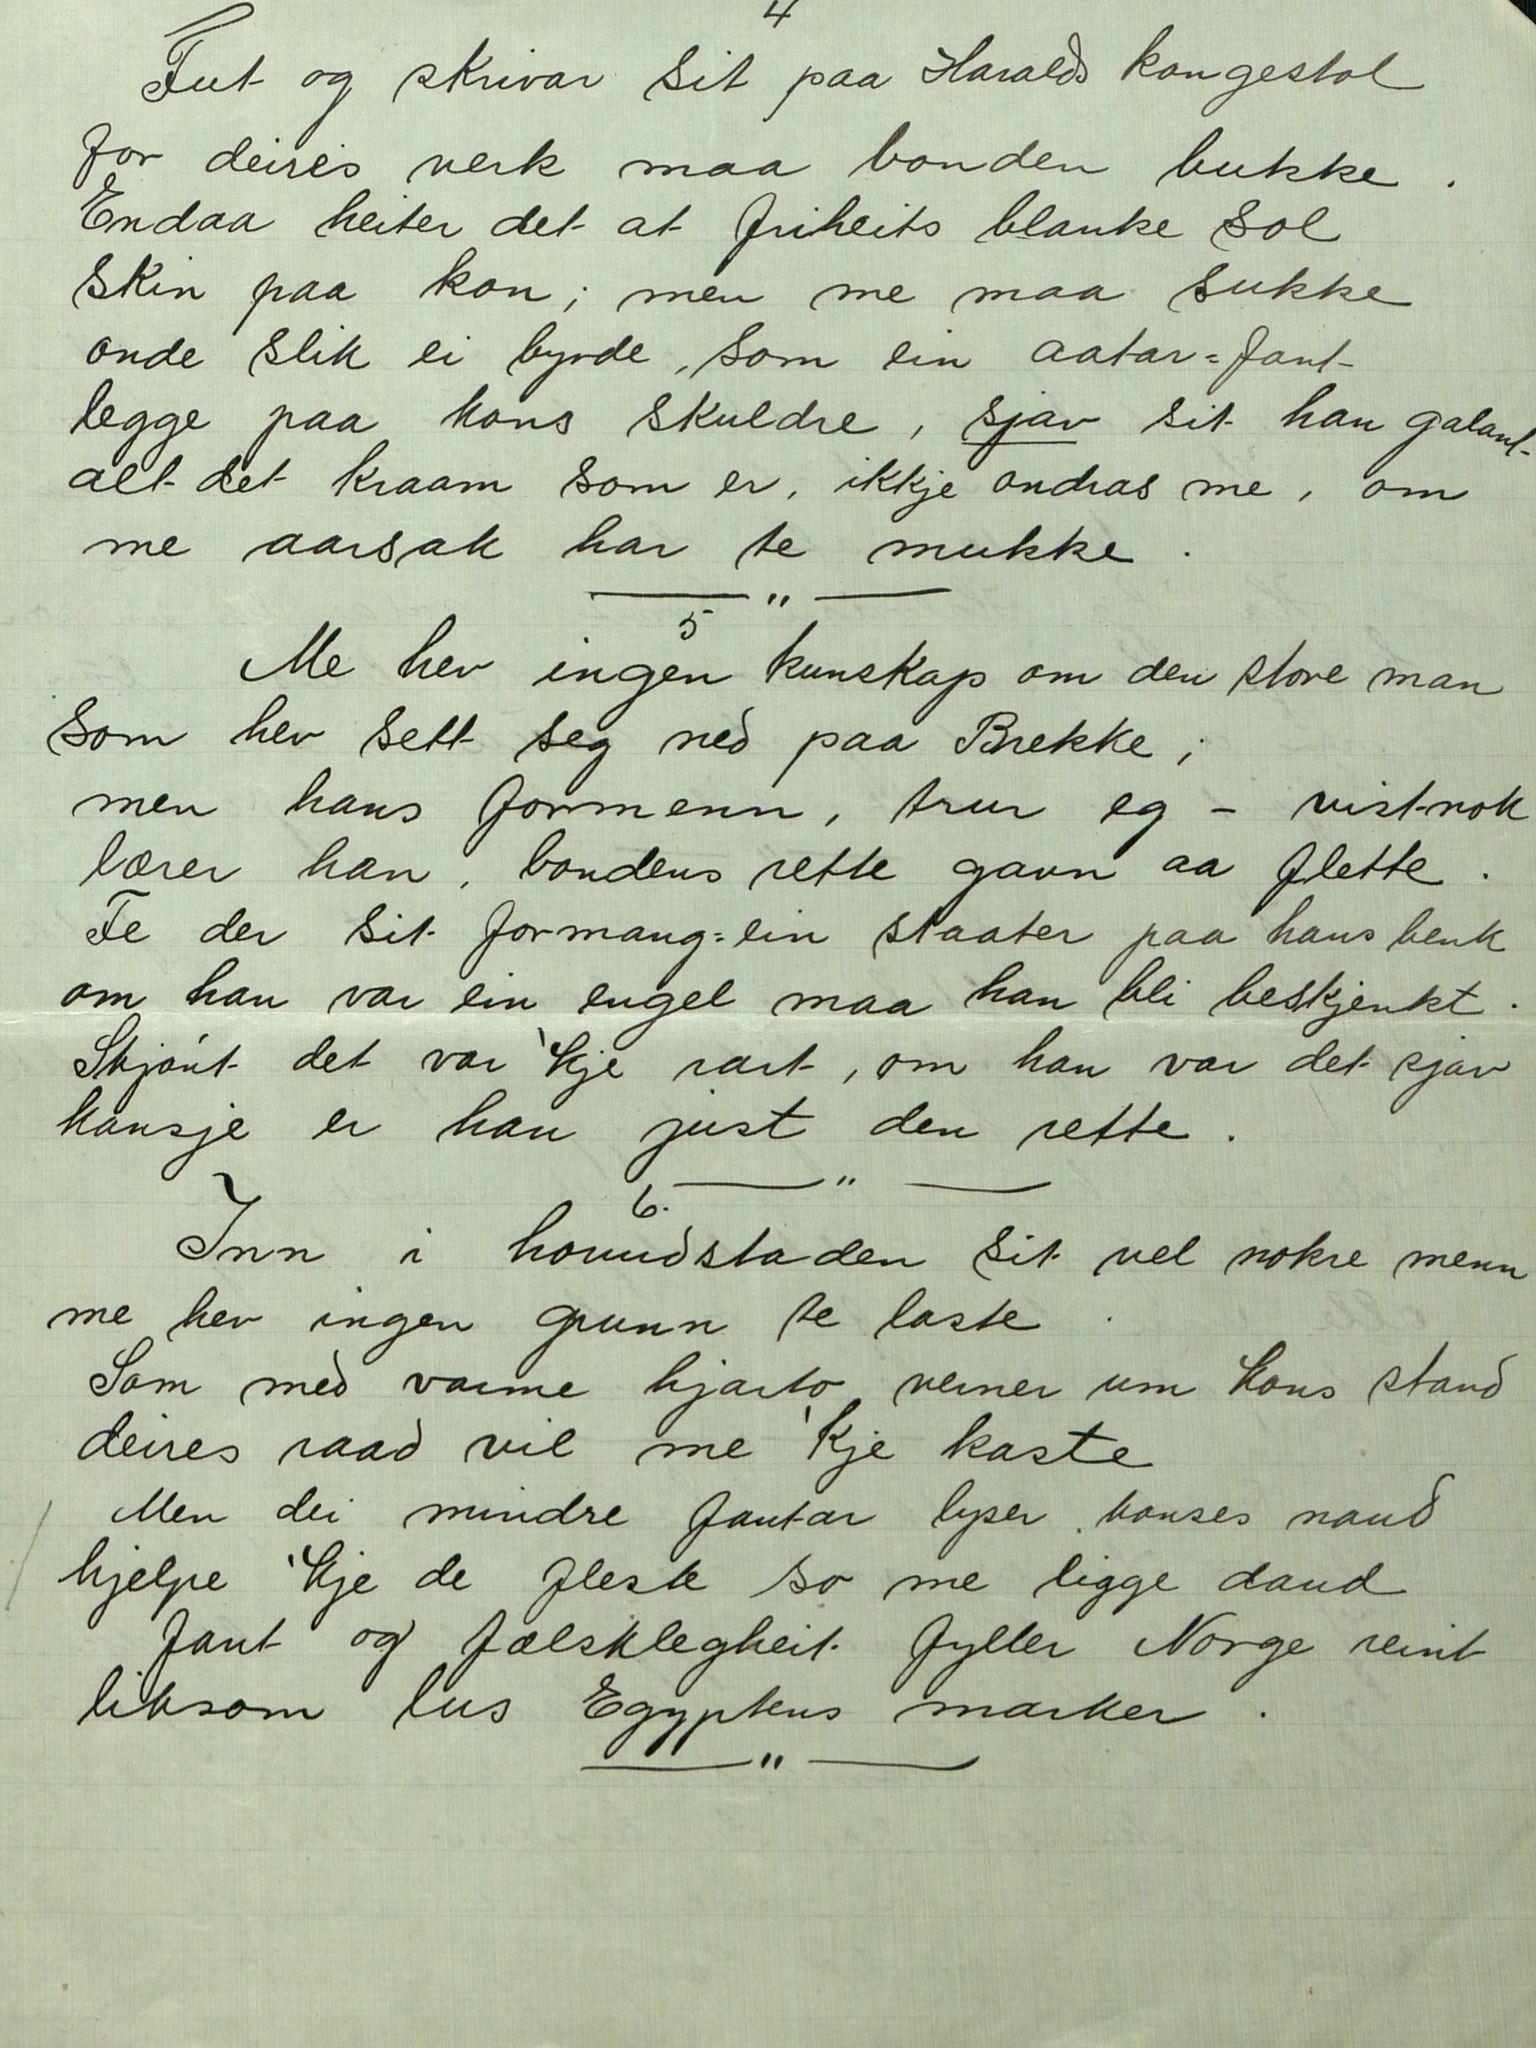 4
Fut og skrivar sit paa Haralds kongestol
for deires verk maa bonden bukke.
Endaa heiter det at friheits blanke sol
skin paa kon; men me maa sukke
onde slik ei byrde, som ein aatar=fant
legge paa kons skuldre, sjav sit han galant
alt det kraam som er, ikkje ondras me, om
me aarsak har te mukke.
5
Me hev ingen kunskap om den store man
som hev sett seg ned paa Brekke;
men hans formenn, trur eg – vist-nok
lærer han, bondens rette gavn aa flette.
Te der sit formang=ein staater paa hans benk
om han var ein engel maa han bli beskjenkt.
Skjønt det var 'kje rart, om han var det sjav
kansje er han just den rette.
6.
Inn i hovudstaden sit vel nokre menn
me hev ingen grunn te laste.
Som med varme hjarto verner um kons stand
deires raad vil me 'kje kaste
Men dei mindre fantar lyser bonses naud
hjelpe 'kje de flesk so me ligge daud
Fant og fælsklegheit fyller Norge reint
liksom lus Egyptens marker.